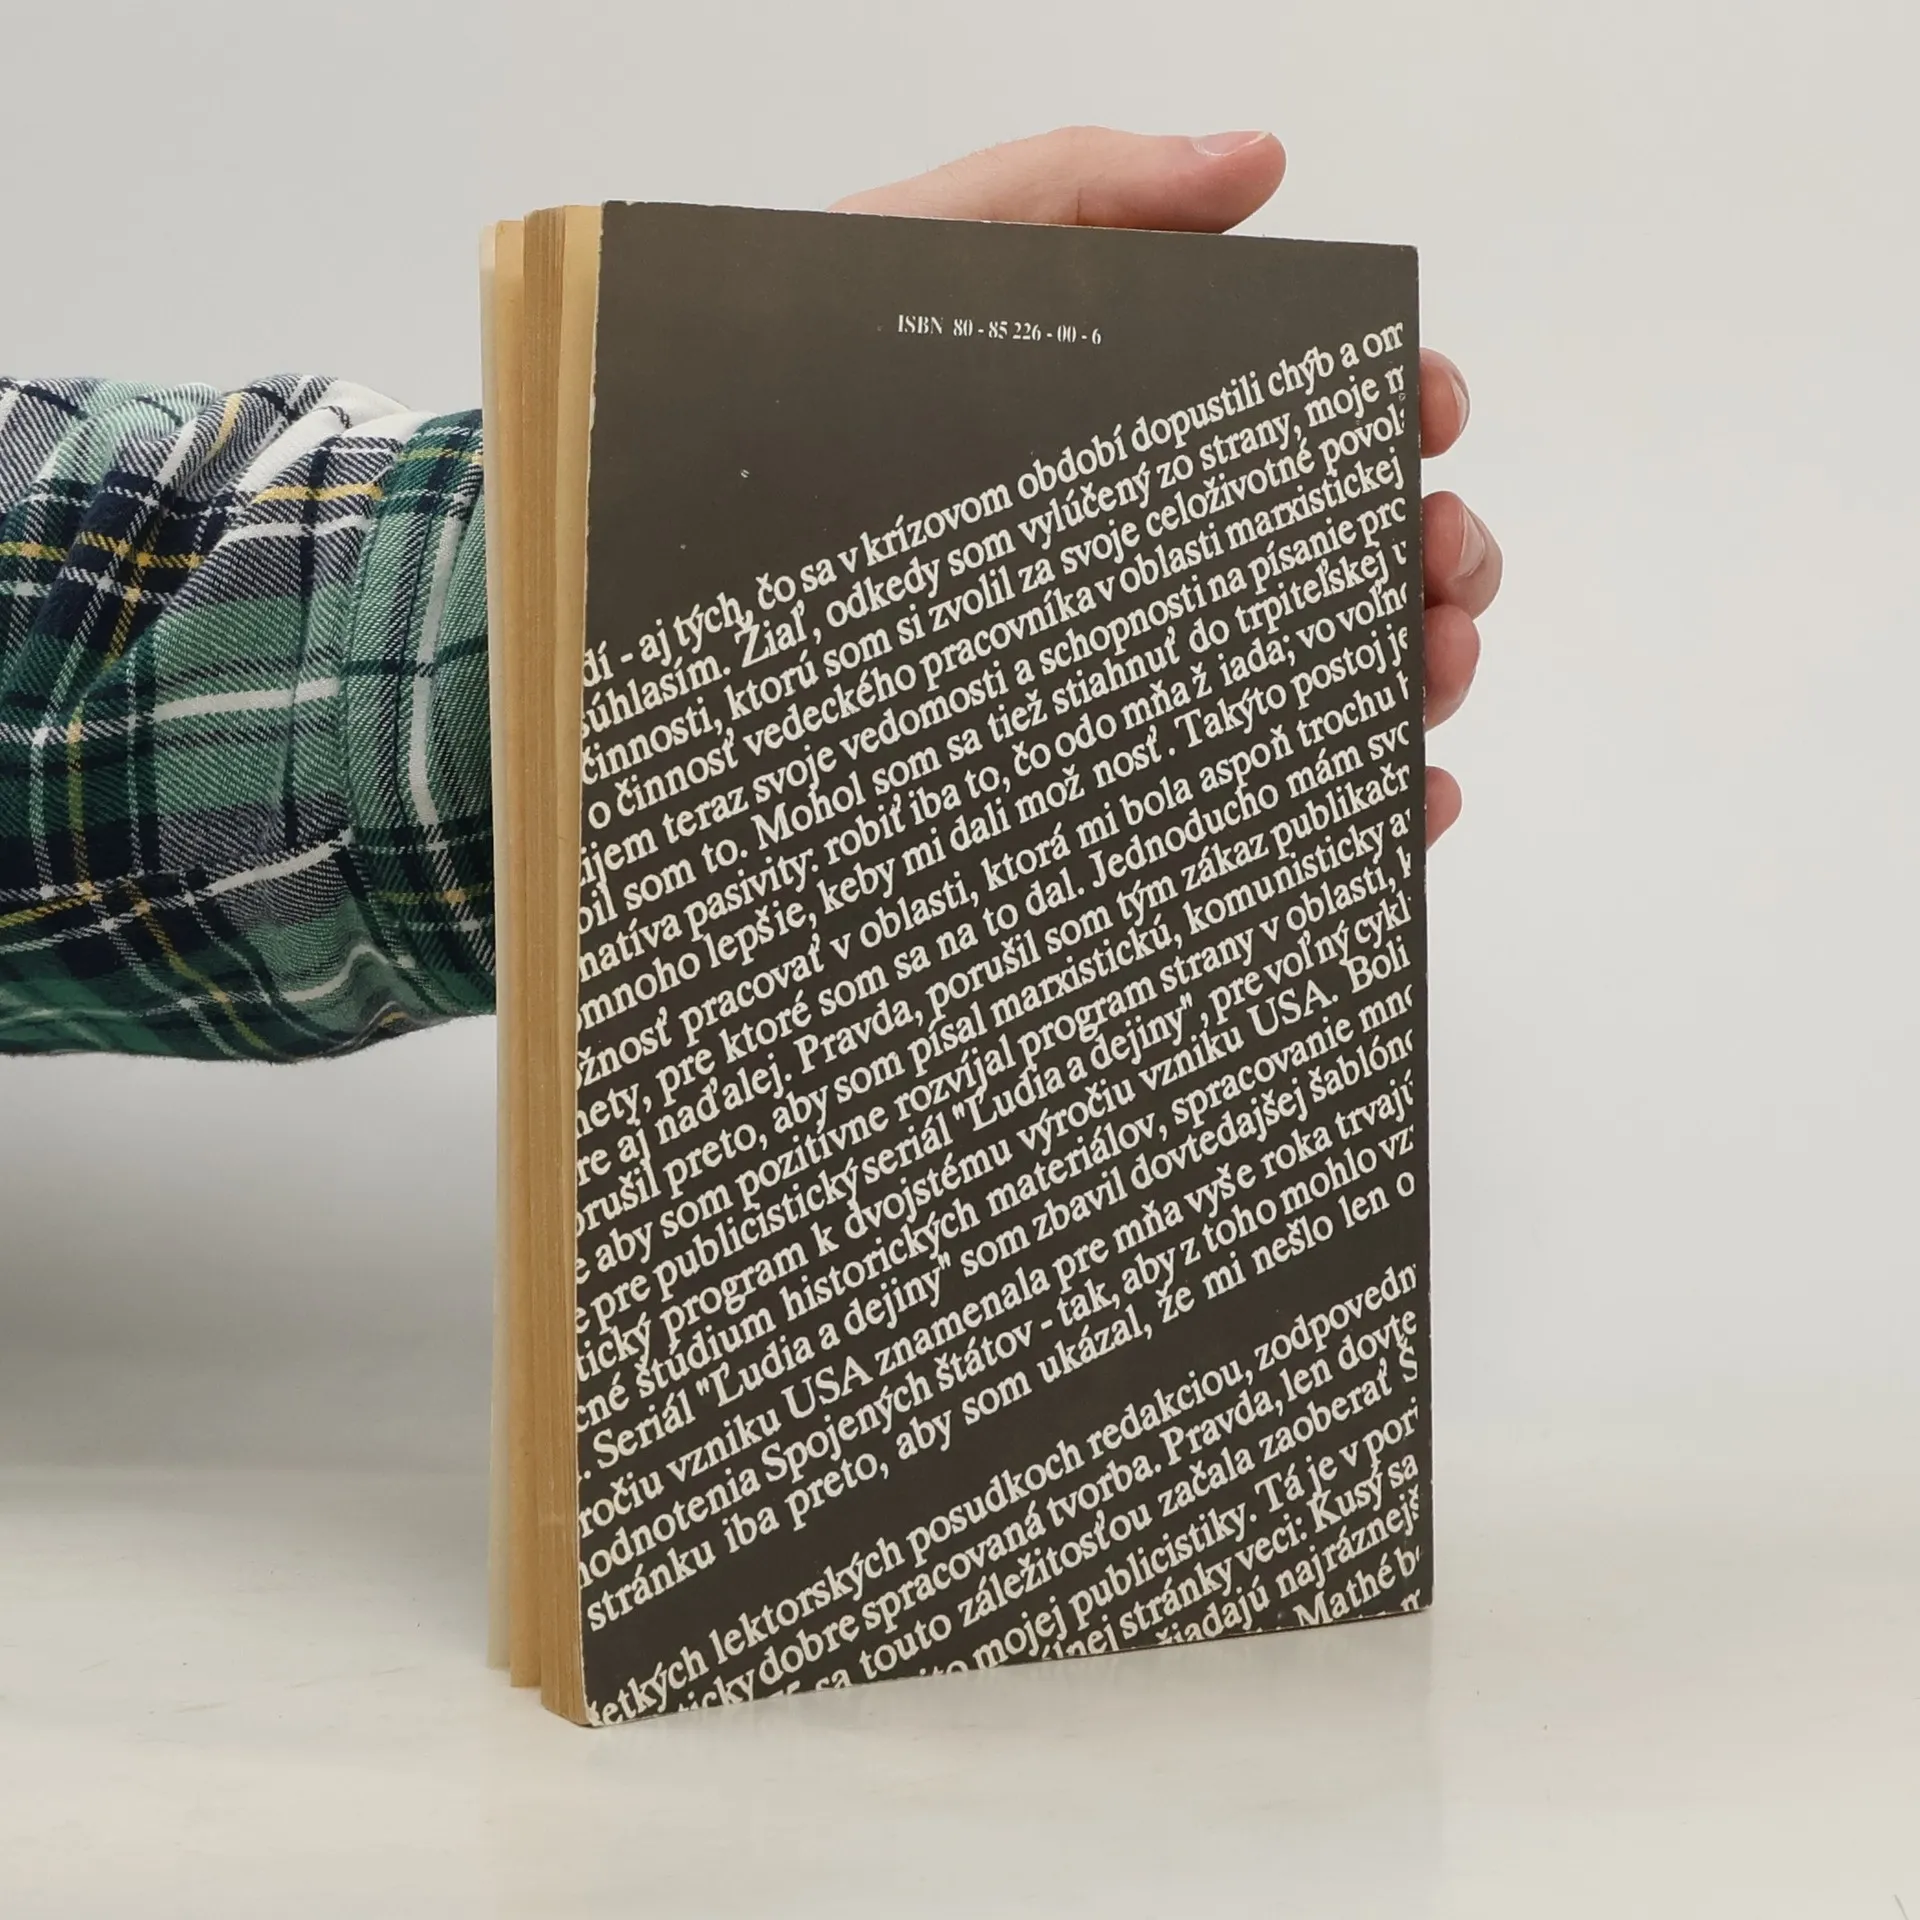 ISBN 80 - 85 226 - 00 - 6
dí - aj tých, čo sa v krízovom období dopustili chýb a om
súhlasím. Žiaľ, odkedy som vylúčený zo strany, moje
činnosti, ktorú som si zvolil za svoje celoživotné povol
o činnosť vedeckého pracovníka v oblasti marxistickej
ijem teraz svoje vedomosti a schopnosti na písanie pro
bil som to. Mohol som sa tiež stiahnuť do trpiteľskej u
natíva pasivity: robiť iba to, čo odo mňa ž iada; vo voľno
omnoho lepšie, keby mi dali mož nosť. Takýto postoj je
žnosť pracovať v oblasti, ktorá mi bola aspoň trochu
nety, pre ktoré som sa na to dal. Jednoducho mám svo
re aj naďalej. Pravda, porušil som tým zákaz publikačn
orušil preto, aby som písal marxistickú, komunisticky a
e aby som pozitívne rozvíjal program strany v oblasti,
e pre publicistický seriál "Ľudia a dejiny", pre voľný cykl
tický program k dvojstému výročiu vzniku USA. Boli
cné štúdium historických materiálov, spracovanie mno
. Seriál "Ľudia a dejiny" som zbavil dovtedajšej šablóno
ročiu vzniku USA znamenala pre mňa vyše roka trvajú
hodnotenia Spojených štátov - tak, aby z toho mohlo vz
stránku iba preto, aby som ukázal, že mi nešlo len o
šetkých lektorských posudkoch redakciou, zodpovedn
icky dobre spracovaná tvorba. Pravda, len dovte
sa touto záležitosťou začala zaoberať Š
mojej publicistiky. Tá je v por
stránky veci: Kusý sa
žiadajú najráznejš
Mathé b